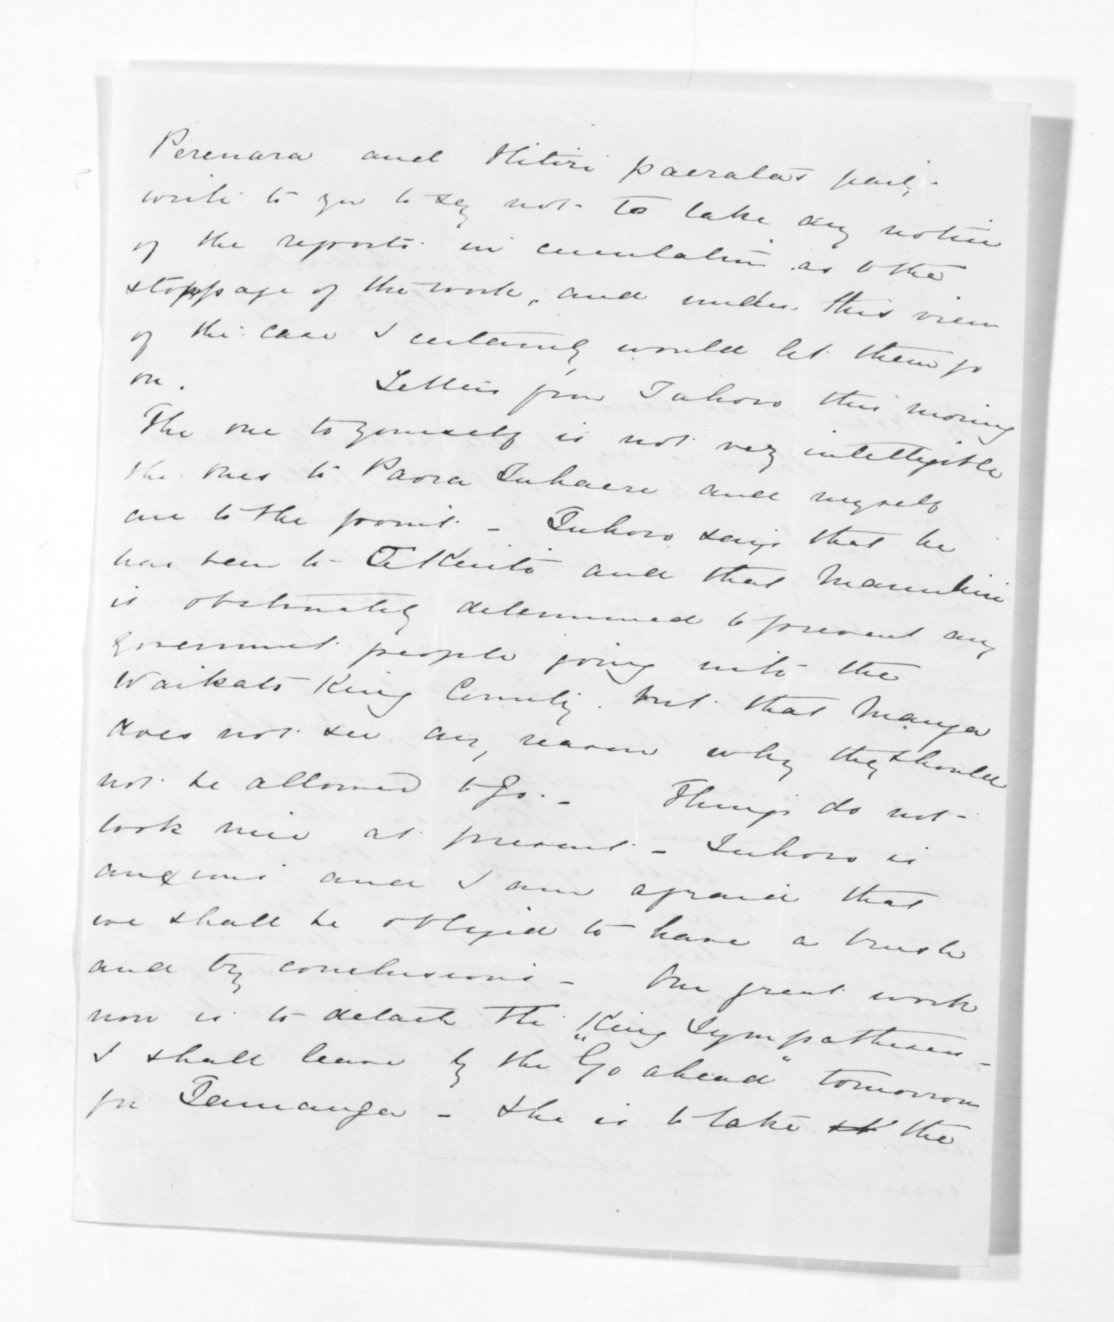 Perenara and Hitiri paerata's party
write to you to say not to take any notice
of the reports in circulation as to the
stoppage of the work, and under this view
of the case I certainly would let them go
on. Letters from Tuhoro this morning
The one to yourself is not very intelligible
the ones to Paora Tuhaere and myself
are to the point - Tuhoro says that he
has been to Te Kuiti and that Manuhiri
is obstinately determined to prevent any
government people going into the
Waikato King Country. but that Manga
does not see any reason why they should
not be allowed to go. - Things do not
look nice at present - Tuhoro is
anxious and I am afraid that
we shall be obliged to have a brush
and try conclusions - Our great work
now is to detach the King Sympathisers -
I shall leave by the "Go ahead" tomorrow
for Tauranga - She is to take the